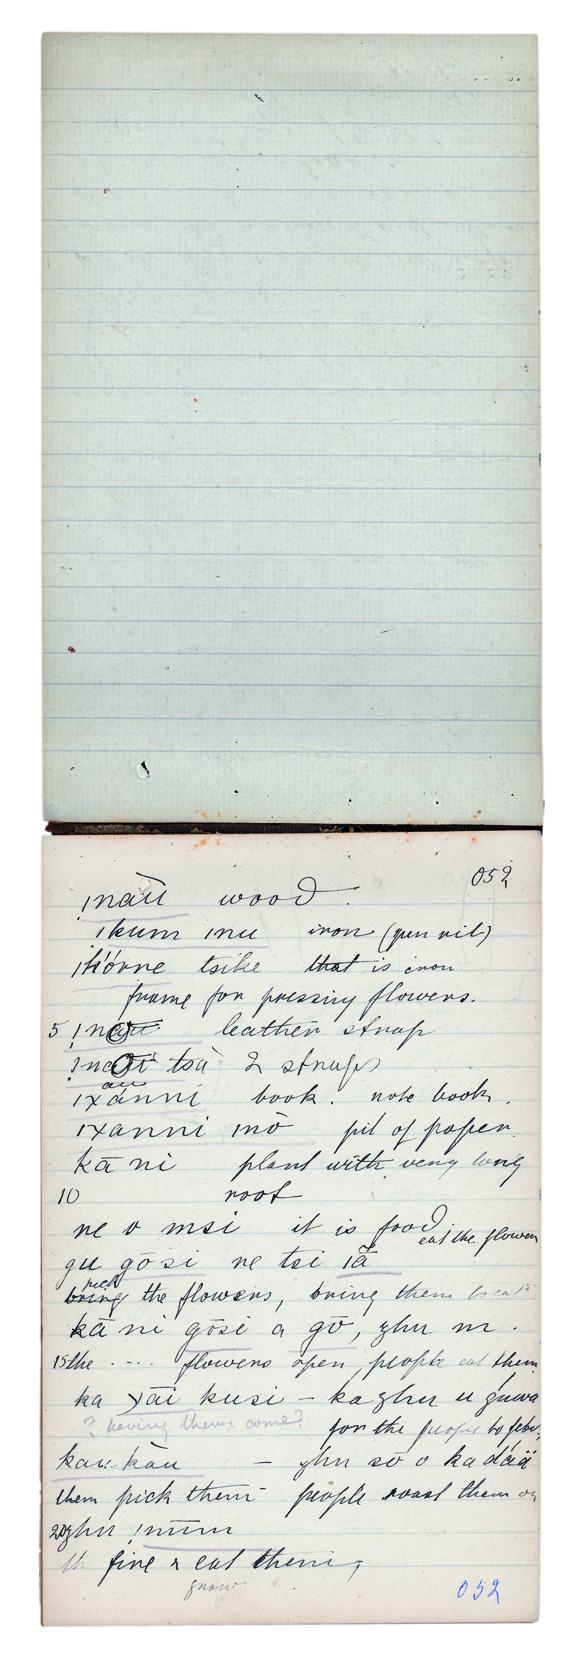 052
!nāū wood
!kum ınu iron (pen nil)
!kórne tsike that is iron
frame for pressing flowers.
5 !nau leather strap
!nau tsā 2 straps
au
ıxánni book. note book.
ıxanni ınō pit of paper.
kā ni plant with very long
10 root
ne o msi it is food
eat the flowers
gu gōsi ne tsi ıā
pick
bring the flowers, bring them
kā ni gōsi a gō, zhu m
15 the .... flowers open, people eat them
ka xāi kusi – ka zhu u
? having them come? for the people to
kau kāu – zhu sō o ka dáä
them pick them – people roast them on
20 zhu !mūm
fire & eat them,
gnaw
052